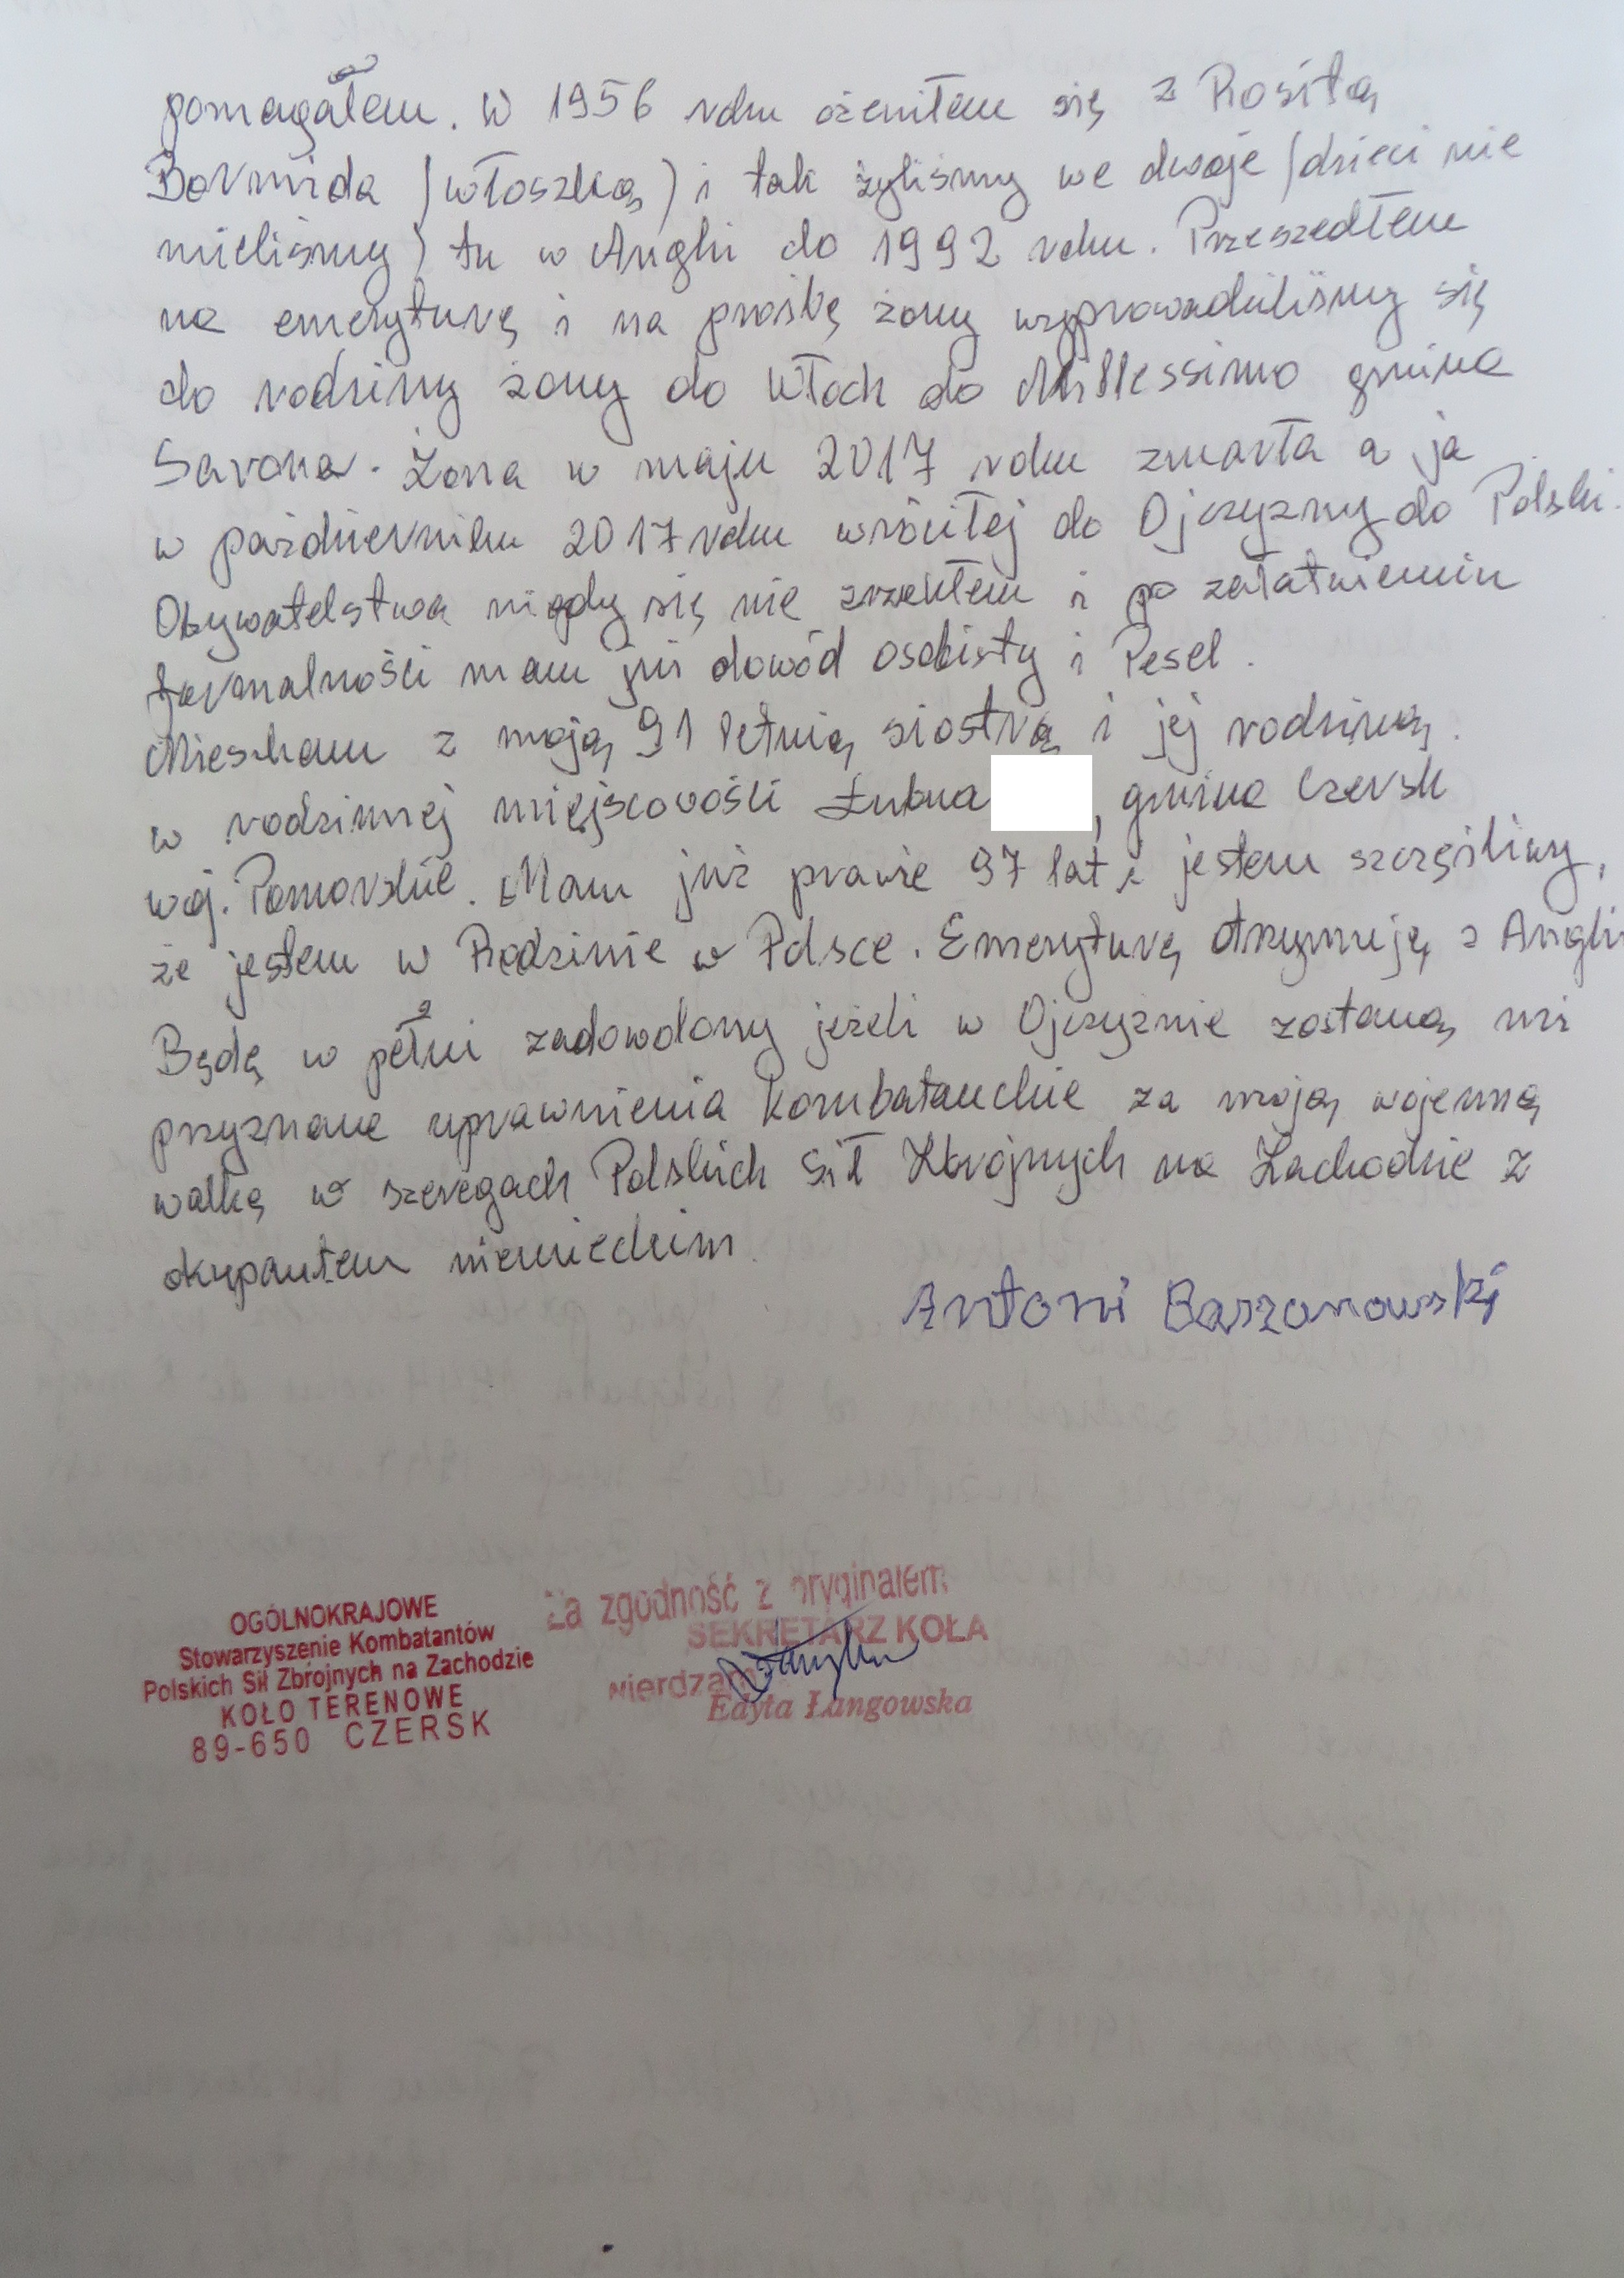 pomagałem. W 1956 roku ożeniłem się z Rositą
Bormida (włoszką) i tak żyliśmy we dwoje (dzieci nie
mieliśmy) tu w Anglii do 1992 roku. Przeszedłem
na emeryturę i na prośbę żony wyprowadziliśmy się
do rodziny żony do Włoch do Millessimo gmina
Savona. Żona w maju 2017 roku zmarła a ja
w październiku 2017 roku wróciłej do Ojczyzny do Polski.
Obywatelstwa nigdy się nie zrzekłem i po załatwieniu
formalności mam już dowód osobisty i Pesel.
Mieszkam z moją 91 letnią siostrą i jej rodziną.
w rodzinnej miejscowości Łubna , gmina Czersk
woj. Pomorskie. Mam już prawie 97 lat i jestem szczęśliwy,
że jestem w Rodzinie w Polsce. Emeryturę otrzymuję z Anglii
Będę w pełni zadowolony jeżeli w Ojczyźnie zostaną mi
przyznane uprawnienia kombatanckie za moją wojenną
walkę w szeregach Polskich Sił Zbrojnych na Zachodzie z
okupantem niemieckim.
Antoni Baszanowski
OGÓLNOKRAJOWE
Stowarzyszenie Kombatantów
Polskich Sił Zbrojnych na Zachodzie
KOŁO TERENOWE
89-650 CZERSK
Za zgodność z oryginałem
SEKRETARZ KOŁA
Edyta Łangowska